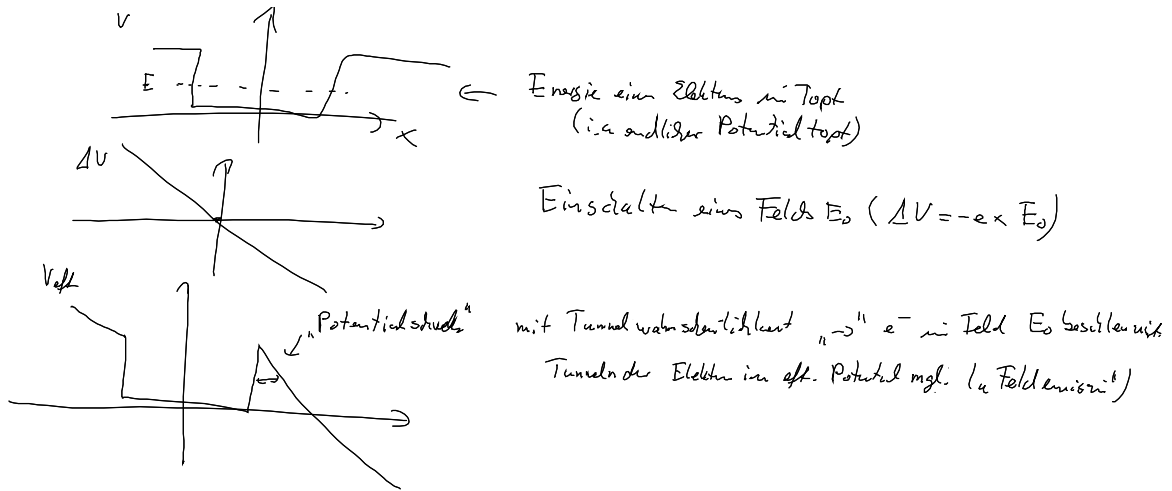 V
E
x
← Energie eines Elektrons im Topf
(i.a endlicher Potentialtopf)
ΔV
Einschalten eines Felds E₀ (ΔV = -e x E₀)
V eff
„Potentialschwelle“
mit Tunnelwahrscheinlichkeit „→“ e⁻ im Feld E₀ beschleunigt
Tunneln der Elektron im eff. Potential mgl. („Feldemission“)